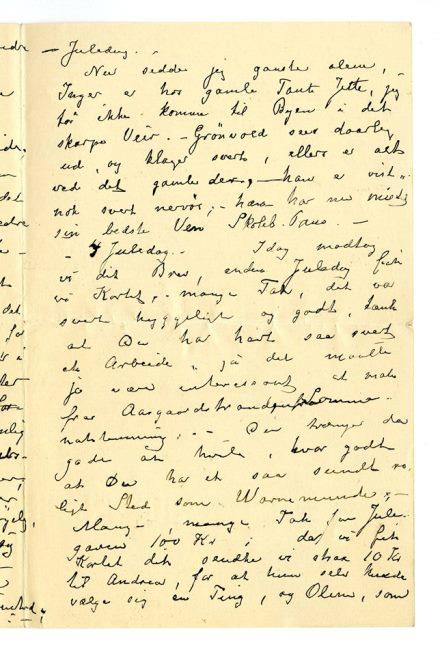 – Juledag. –
Nu sidder jeg ganske alene, –
Inger er hos gamle Tante Jette, jeg
tør ikke komme til Byen i det
skarpe Veir. – Grönvold sees daarlig
ud, og klager svært, ellers er alt
ved det gamle der, – han er vist
nok svært nervøs, – han har nu mistet
sin bedste Ven Skoleb. Paus. –
– 4 Juledag. – Idag modtog
vi dit Brev, anden Juledag fik
vi Kortet, – mange Tak, det var
svært hyggeligt og godt, tænk
at Du har havt saa svært
et Arbeide, ja det maatte
jo være interessant at male
fra Aasgaardstrand
– Du trænger da
gode at hvile, hvor godt
at Du har et saa sundt ro-
ligt Sted som Warnemünde, –
Mange –, mange Tak for Jule-
gaven 100 Kr i da vi fik
Kortet dit sendte vi strax 10 Kr
til Andrea, for at hun selv kunde
vælge sig en Ting, og Olene, som